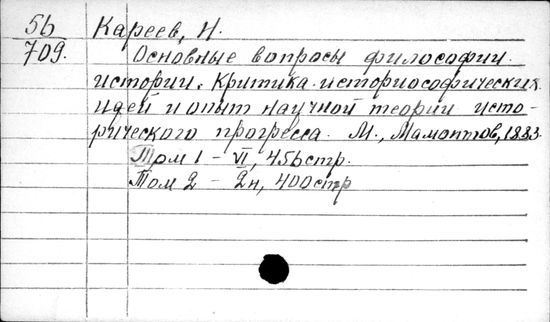 56 Кареев, Н.
709. Основные вопросы философии
истории. Критика историософических
идей и опыт научной теории исто-
рического прогресса. М., Мамонтов, 1883.
Том 1 – VI, 456 стр.
Том 2 – 2н, 400 стр